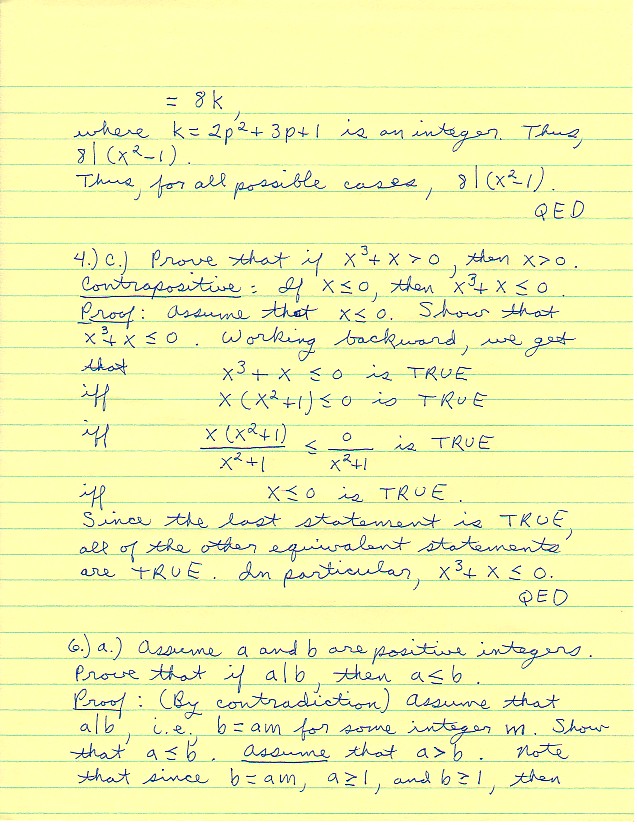 = 8k,
where k = 2p²+3p+1 is an integer. Thus,
8|(x²-1).
Thus, for all possible cases, 8|(x²-1).
QED
4.) c.) Prove that if x³+x>0, then x>0.
Contrapositive: If x≤0, then x³+x≤0.
Proof: Assume that x≤0. Show that
x³+x≤0. Working backward, we get
that x³+x ≤0 is TRUE
iff x(x²+1)≤0 is TRUE
iff x(x²+1)/x²+1 ≤ 0/x²+1 is TRUE
iff x≤0 is TRUE.
Since the last statement is TRUE,
all of the other equivalent statements
are TRUE. In particular, x³+x≤0.
QED
6.) a.) Assume a and b are positive integers.
Prove that if a|b, then a≤b.
Proof: (By contradiction) Assume that
a|b, i.e., b=am for some integer m. Show
that a≤b. Assume that a>b. Note
that since b=am, a≥1, and b≥1, then